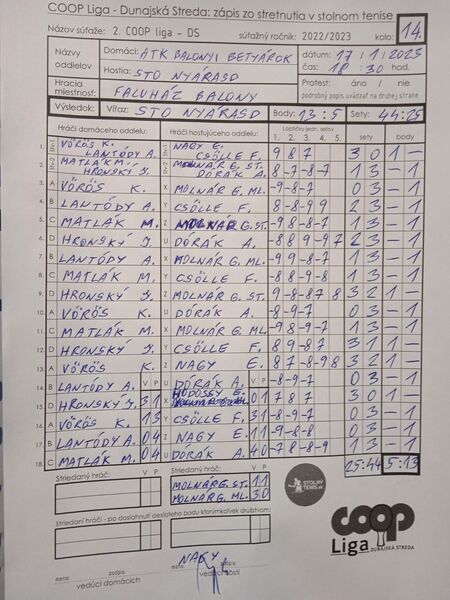 COOP Liga - Dunajská Streda: zápis zo stretnutia v stolnom tenise
Názov súťaže: 2. COOP liga - DS súťažný ročník: 2022/2023 kolo: 14.
Názvy oddielov Domáci: ATK BALONYI BETYÁROK dátum: 17 / 1 / 2023
Hostia: STO NYÁRASD čas: 18 : 30 hod.
Hracia miestnosť: FALUHÁZ BALONY Protest: áno / nie podrobný popis uvádzať na druhej strane
Výsledok: Víťaz: STO NYÁRASD Body: 13:5 Sety: 44:25
Hráči domáceho oddielu: Hráči hosťujúceho oddielu: 1. 2. 3. 4. 5. sety body
1. VÖRÖS K. LANTÓDY A. NAGY E. CSÖLLE F. 9 8 7 3 0 1 -
2. MATLÁK M. HRONSKÝ J. MOLNÁR G. ST. DÓRÁK A. 8-7-8-7 1 3 - 1
3. A VÖRÖS K. X MOLNÁR G. ML. -9-8-7 0 3 - 1
4. B LANTÓDY A. Y CSÖLLE F. 8-8-99 2 3 - 1
5. C MATLÁK M. Z MOLNÁR G. ST. -98-8-7 1 3 - 1
6. D HRONSKÝ J. U DÓRÁK A. -889-97 2 3 - 1
7. B LANTÓDY A. X MOLNÁR G. ML. -99-8-7 1 3 - 1
8. C MATLÁK M. Y CSÖLLE F. -88-9-8 1 3 - 1
9. D HRONSKÝ J. Z MOLNÁR G. ST. 9-8-87 8 3 2 1 -
10. A VÖRÖS K. U DÓRÁK A. -8-9-7 0 3 - 1
11. C MATLÁK M. X MOLNÁR G. ML. -98-9-7 1 3 - 1
12. D HRONSKÝ J. Y CSÖLLE F. 89-87 3 1 1 -
13. A VÖRÖS K. Z NAGY E. 87-8-98 3 2 1 -
14. B LANTÓDY A. V P U DÓRÁK A. V P -8-9-7 0 3 - 1
15. D HRONSKÝ J. 3 1 X HODOSSY E. 0 1 7 8 7 3 0 1 -
16. A VÖRÖS K. 1 3 Y CSÖLLE F. 3 1 -8-9-7 0 3 - 1
17. B LANTÓDY A. 0 4 Z NAGY E. 1 1 -9-8-8 0 3 - 1
18. C MATLÁK M. 0 4 U DÓRÁK A. 4 0 -78-8-9 1 3 - 1
Striedaný hráč: V P Striedaný hráč: V P 25:44 5:13
MOLNÁR G. ST. 1 1
MOLNÁR G. ML. 3 0
STOLNÝ TENIS.sk
Striedaní hráči - po dosiahnutí desiateho bodu ktorýmkoľvek družstvom:
COOP
Liga DUNAJSKÁ STREDA
NAGY
meno podpis meno podpis
vedúci domácich vedúci hostí